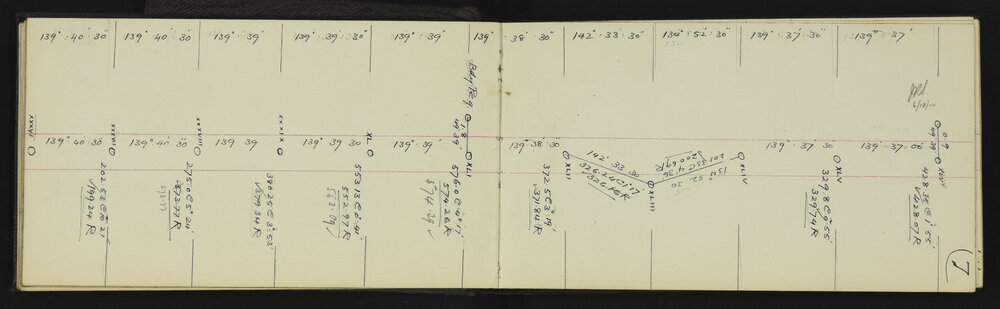 139° 40' 30"
139° 40' 30"
139° 39'
139° 39' 30"
139° 39'
139° 38' 30"
142° 33' 30"
134° 52' 30"
139° 37' 30"
139° 37'
Bdy Peg
6/10/10
XXXVI
139° 40' 30"
XXXVII
139° 40' 30"
XXXVIII
139 39
XXXIX
139 39 30
XL
139° 39'
XLI
139° 38' 30"
XLII
142° 33' 30
XLIII
134 52 30
XLIV
139° 37' 30
XLV
139° 37' 00"
XLVI
199 24 R
275 0 C 5° 24'
380 25 C 3° 53'
379 34 R
553 13 C 0° 41'
552 97 R
576 0 C 4° 17'
574 26 R
574 39
372 5 C 3° 19'
371 84 R
326 R
201 33 C 4° 36'
200 69 R
329 8 C 0° 55'
329 74 R
428 35 C 1° 55'
428 07 R
7